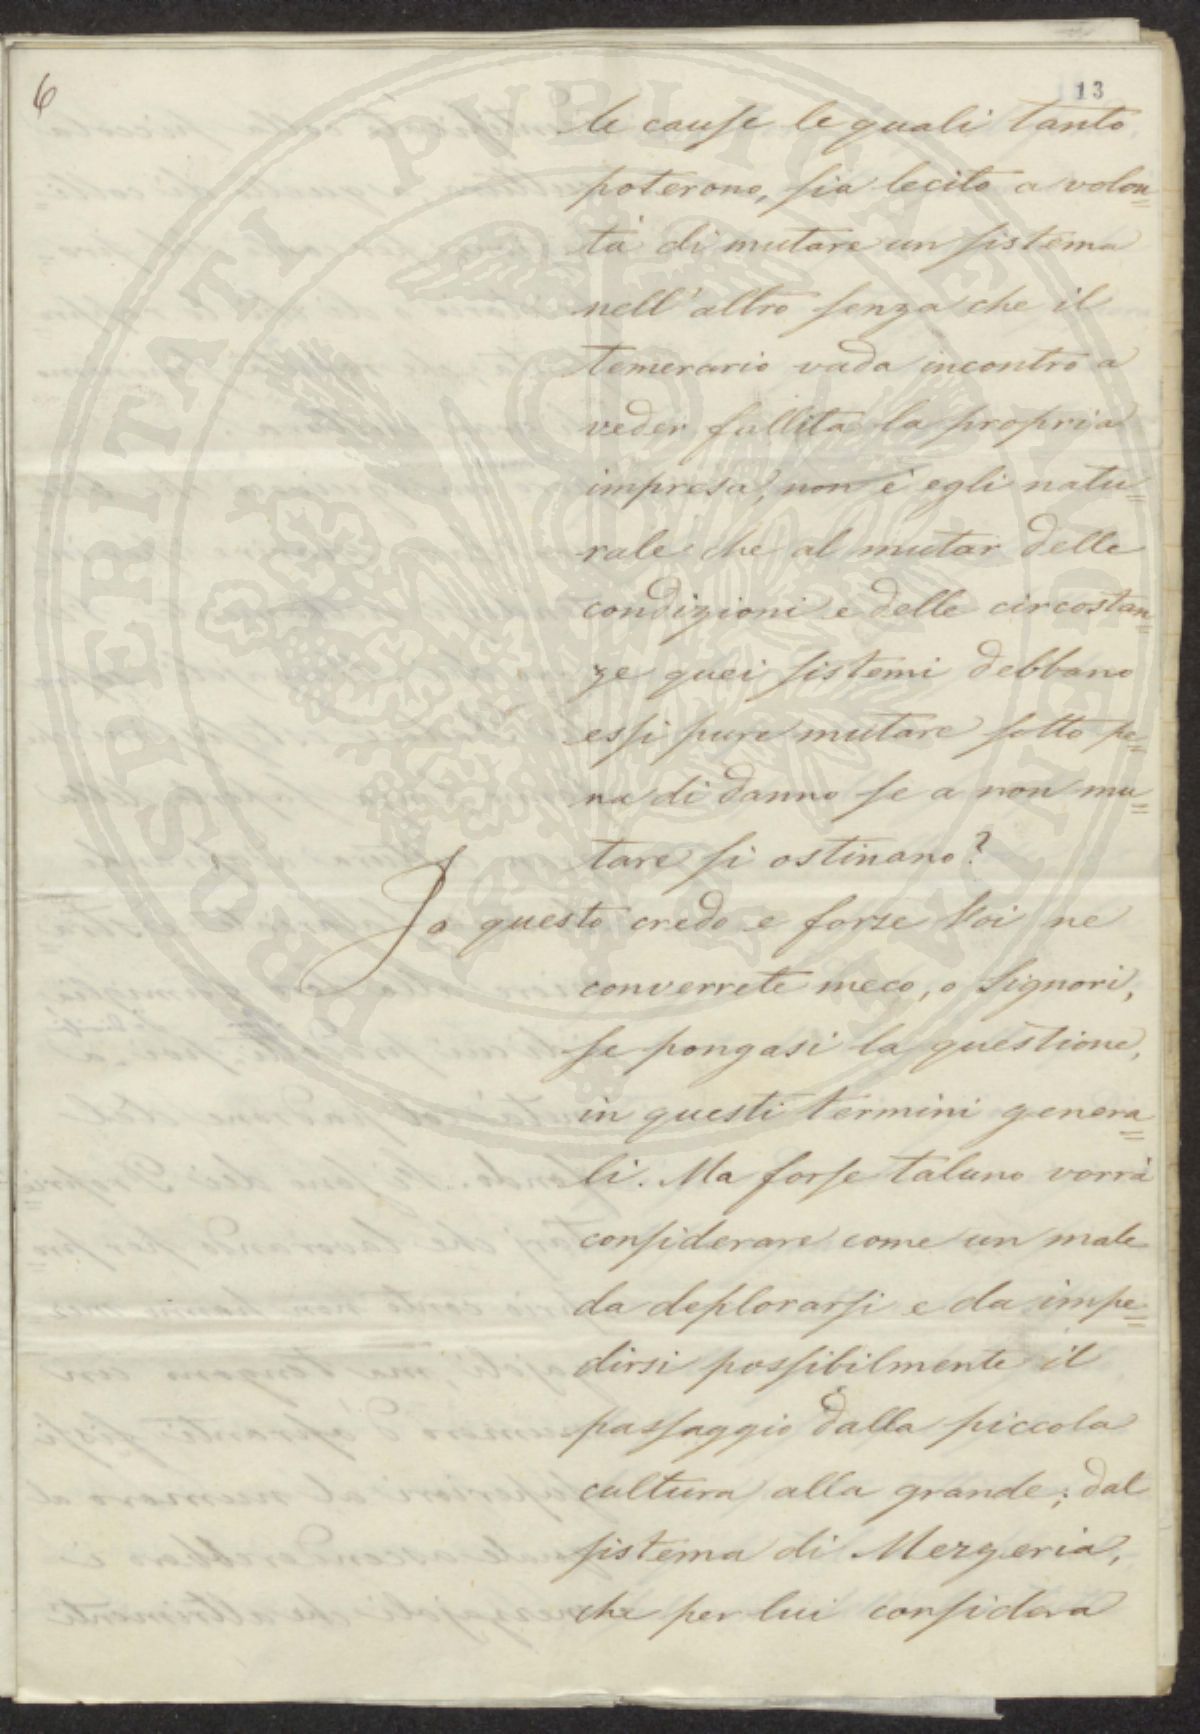 6
13
le cause le quali tanto
poterono, sia lecito a volon=
tà di mutare un sistema
nell'altro senza che il
temerario vada incontro a
veder fallita la propria
impresa, non è egli natu=
rale che al mutar delle
condizioni e delle circostan=
ze quei sistemi debbano
essi pure mutare sotto pe=
na di danno se a non mu=
tare si ostinano?
Io questo credo e forse Voi ne
converrete meco, o Signori,
se pongasi la questione,
in questi termini genera=
li. Ma forse taluno vorrà
considerare come un male
da deplorarsi e da impe=
dirsi possibilmente il
passaggio dalla piccola
cultura alla grande; dal
sistema di Mezzeria,
che per lui considera
PROSPERITATI PVBLICAE AVGENDAE